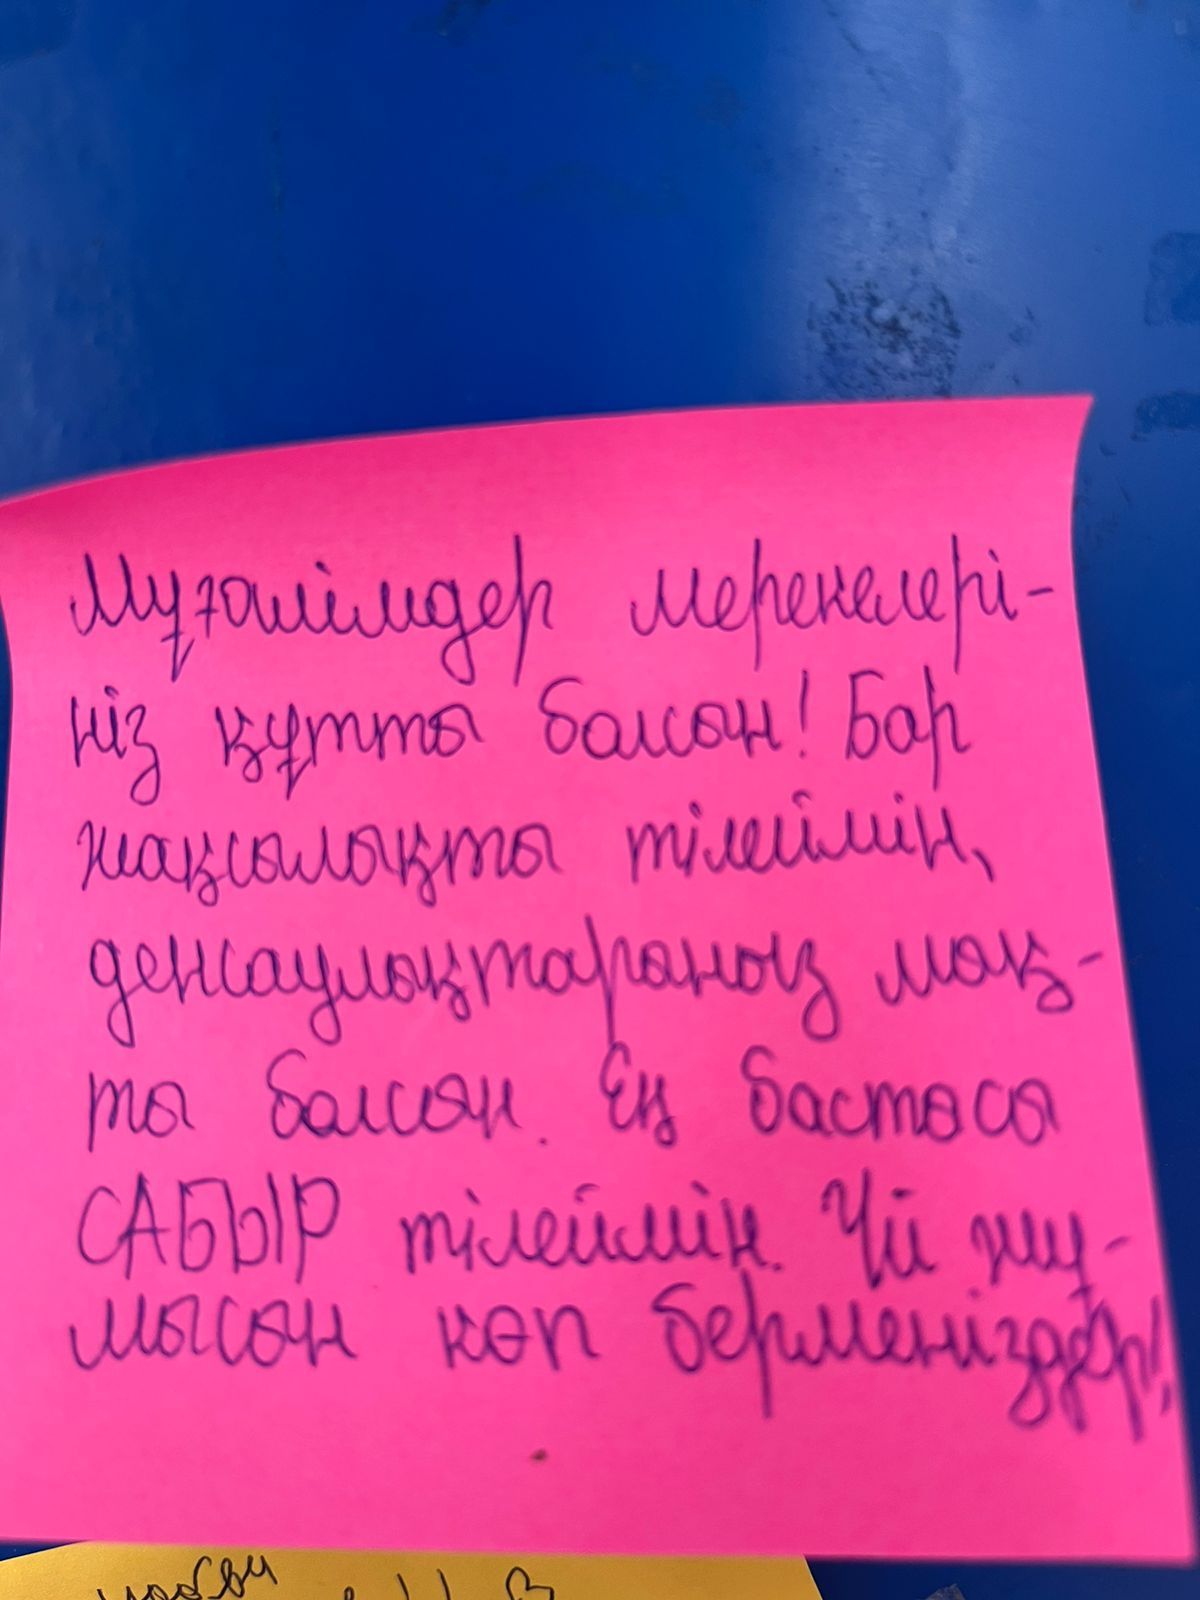 Мұғалімдер мерекелері-
ңіз құтты болсын! Бар
жақсылықты тілеймін,
денсаулықтарыңыз мық-
ты болсын. Ең бастысы
САБЫР тілеймін. Үй жұ-
мысын көп берменіздер!